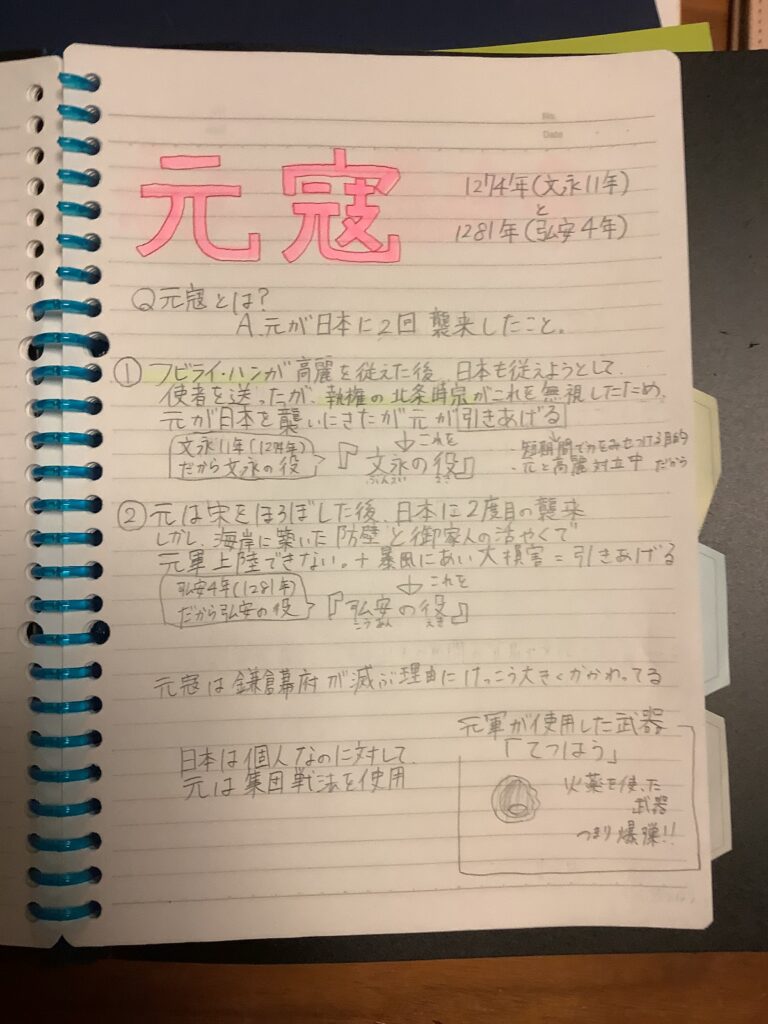 No.
Date
元寇
1274年(文永11年)
と
1281年(弘安4年)
Q元寇とは?
A.元が日本に2回 襲来したこと。
① フビライ・ハンが高麗を従えた後、日本も従えようとして、
使者を送ったが、執権の北条時宗がこれを無視したため、
元が日本を襲いにきたが元が引きあげる
これを
文永11年(1274年)
だから文永の役
『文永の役』
ぶんえい えき
・短期間で力をみせつける目的
・元と高麗対立中 だから
② 元は宋をほろぼした後、日本に2度目の襲来
しかし、海岸に築いた防壁と御家人の活やくで
元軍上陸できない。+暴風にあい大損害=引きあげる
これを
弘安4年(1281年)
だから弘安の役
『弘安の役』
こうあん えき
元寇は鎌倉幕府が滅ぶ理由にけっこう大きくかかわってる
日本は個人なのに対して、
元は集団戦法を使用
元軍が使用した武器
「てつはう」
火薬を使った
武器
つまり爆弾!!